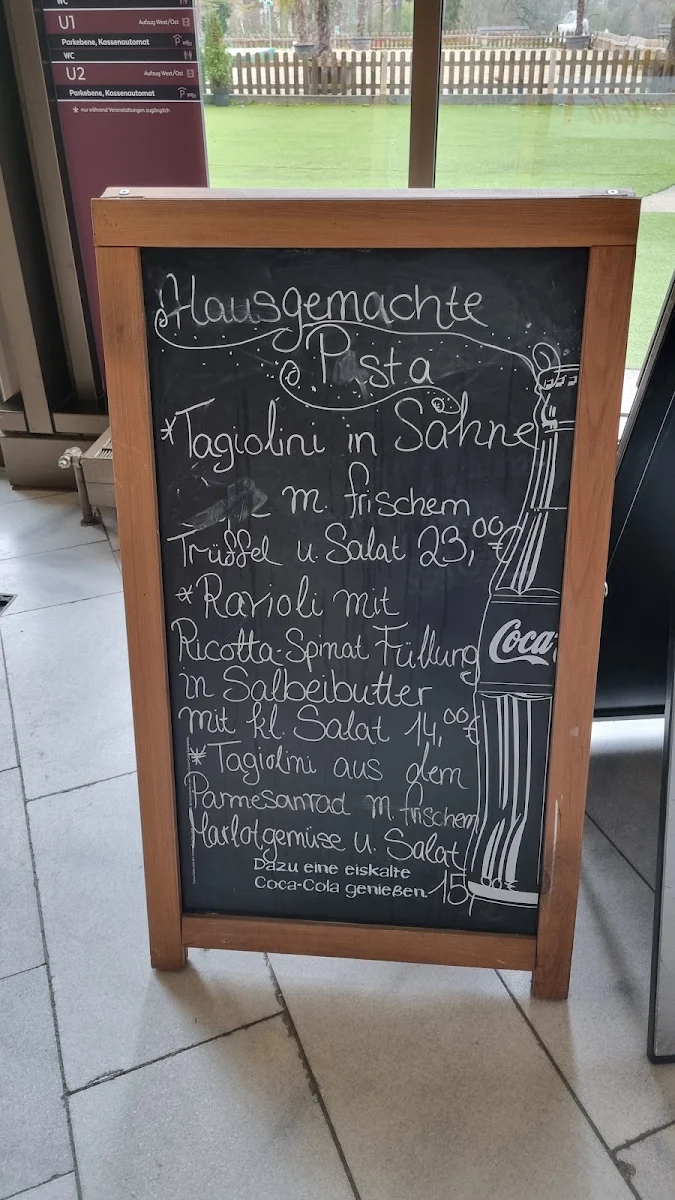 WC
U1 Aufzug West/Ost
Parkebene, Kassenautomat P
WC
U2 Aufzug West/Ost
Parkebene, Kassenautomat P
* nur während Veranstaltungen zugänglich
Hausgemachte
Pasta
*Tagiolini in Sahne
m. frischem
Trüffel u. Salat 23,00€
*Ravioli mit
Ricotta-Spinat Füllung
in Salbeibutter
mit kl. Salat 14,00€
*Tagiolini aus dem
Parmesanrad m. frischem
Marktgemüse u. Salat
Dazu eine eiskalte
Coca-Cola genießen. 15,00€
Coca